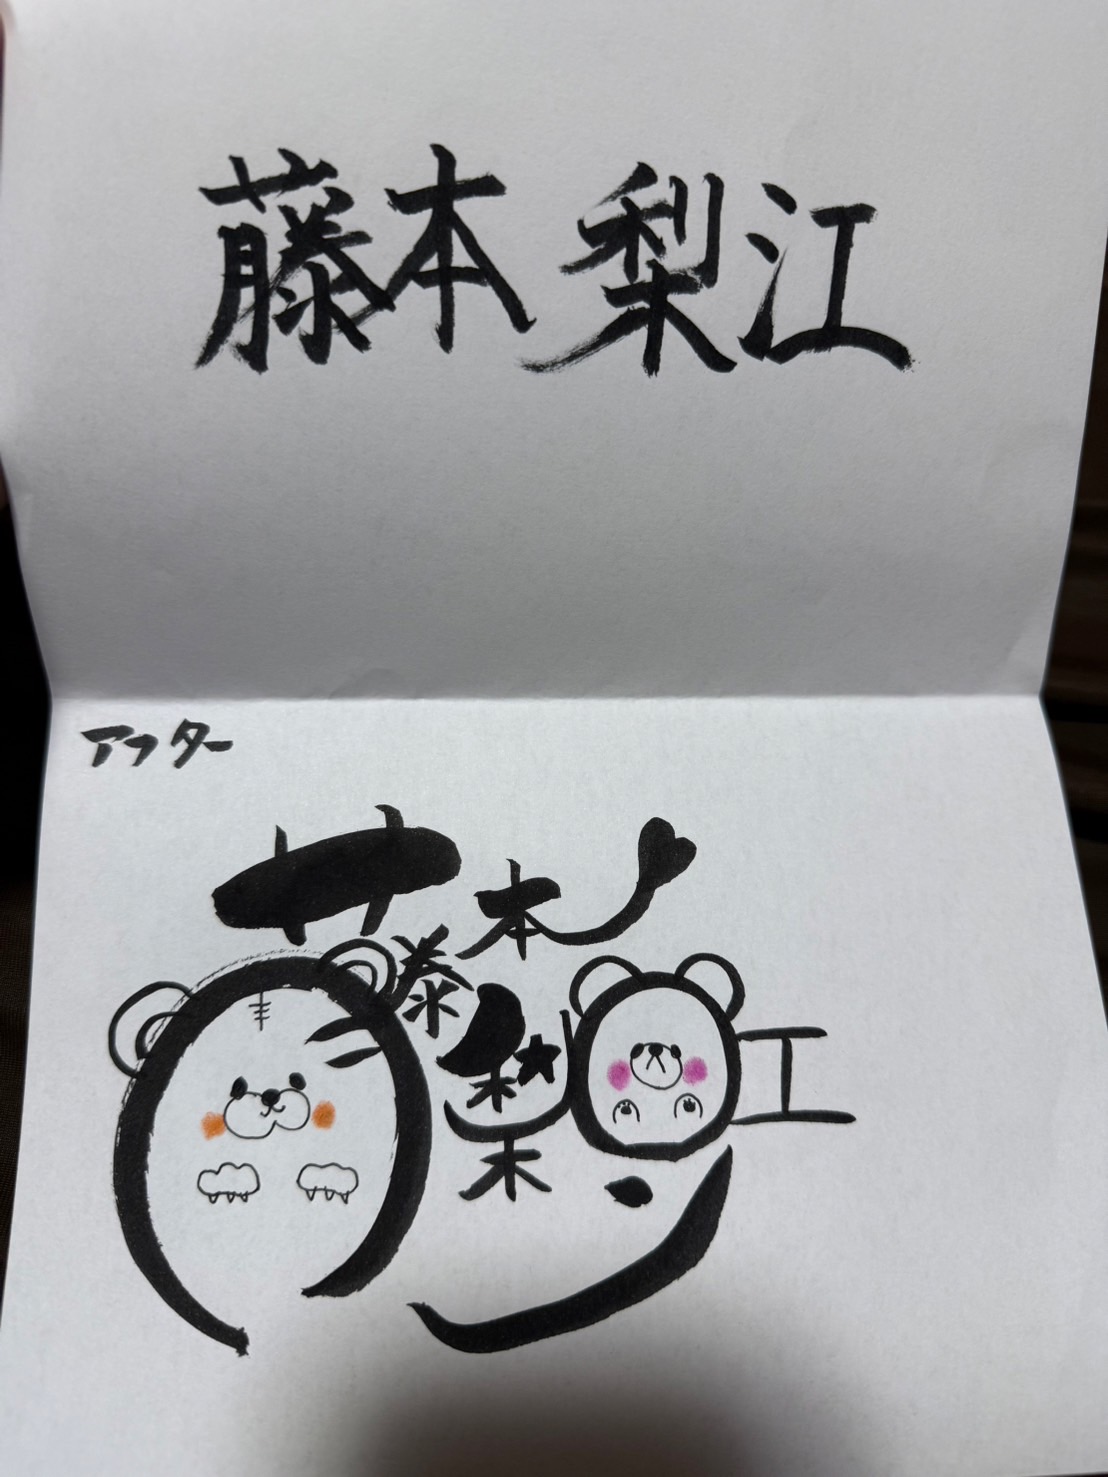 藤本 梨江
アフター
藤本
梨江